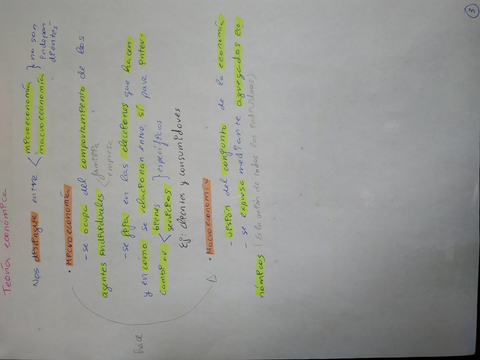 3
Teoría económica
Nos distingue entre < microeconomía } no son
macroeconomía } indepen
dientes
• Microeconomía
- se ocupa del comportamiento de los
agentes individuales < familia
empresa
- se fija en las elecciones que hacen
y en cómo se relacionan entre sí para inter-
cambiar < bienes } específicos
servicios
Ej: clientes y consumidores
• Macroeconomía
- visión del conjunto de la economía
- se expresa mediante agregados eco
nómicos (la unión de todos los individuos)
hace